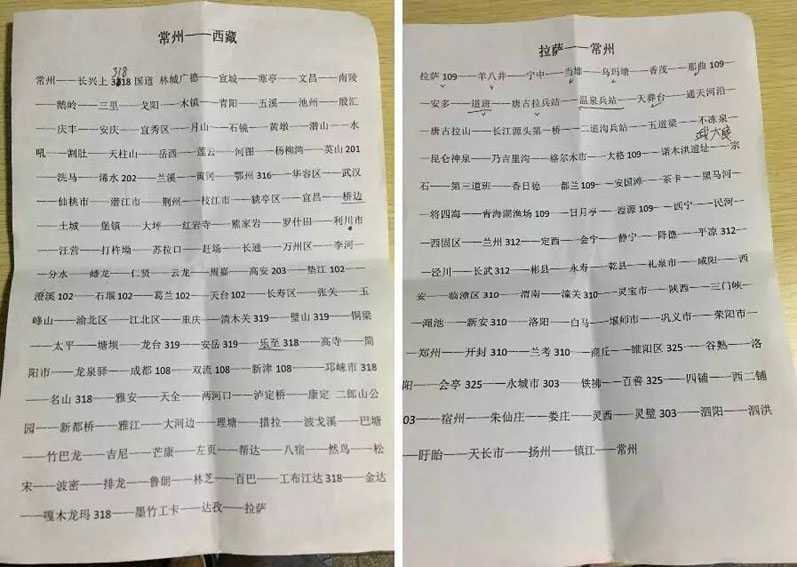 常州——西藏
318
常州——长兴上 318 国道 林城广德——宣城——寒亭——文昌——南陵
——鹅岭——三里——戈阳——木镇——青阳——五溪——池州——殷汇
——庆丰——安庆——宜秀区——月山——石镜——黄墩——潜山——水
吼——割肚——天柱山——岳西——莲云——河图——杨柳湾——英山 201
——洗马——浠水 202——兰溪——黄冈——鄂州 316——华容区——武汉
——仙桃市——潜江市——荆州——枝江市——猇亭区——宜昌——桥边
——土城——堡镇——大坪——红岩寺——熊家岩——罗什田——利川市
——汪营——打杵坳——苏拉口——赶场——长通——万州区——李河—
—分水——蟠龙——仁贤——云龙——周嘉——高安 203——垫江 102——
澄溪 102——石堰 102——葛兰 102——天台 102——长寿区——张关——玉
峰山——渝北区——江北区——重庆——清木关 319——璧山 319——铜梁
——太平——塘坝——龙台 319——安岳 319——乐至 318——高寺——简
阳市——龙泉驿——成都 108——双流 108——新津 108——邛崃市 318
——名山 318——雅安——天全——两河口——泸定桥——康定 二郎山公
园——新都桥——雅江——大河边——理塘——措拉——波戈溪——巴塘
——竹巴龙——吉尼——芒康——左贡——帮达——八宿——然乌——松
宗——波密——排龙——鲁朗——林芝——百巴——工布江达 318——金达
——嘎木龙玛 318——墨竹工卡——达孜——拉萨
拉萨——常州
拉萨 109——羊八井——宁中——当雄——乌玛塘——香茂——那曲 109—
—安多——道班——唐古拉兵站——温泉兵站——天葬台——通天河沿—
—唐古拉山——长江源头第一桥——二道沟兵站——五道梁——不冻泉—
—昆仑神泉——乃吉里沟——格尔木市——大格 109——诺木洪道址——宗
石——第三道班——香日德——都兰 109——安固滩——茶卡——黑马河—
—将四海——青海湖渔场 109——日月亭——湟源 109——西宁——民河—
—西固区——兰州 312——定西——会宁——静宁——隆德——平凉 312—
—泾川——长武 312——彬县——永寿——乾县——礼泉市——咸阳——西
安——临潼区 310——渭南——潼关 310——灵宝市——陕西——三门峡—
—渑池——新安 310——洛阳——白马——堰师市——巩义市——荥阳市—
—郑州——开封 310——兰考 310——商丘——睢阳区 325——谷熟——洛
阳——会亭 325——永城市 303——铁拂——百善 325——四铺——西二铺
03——宿州——朱仙庄——娄庄——灵西——灵璧 303——泗阳——泗洪
——盱眙——天长市——扬州——镇江——常州